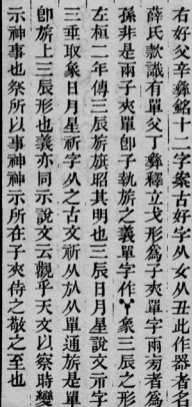 右好父辛彝十二字案古好字从女从丑此作器者名
薛氏款識有單父丁彝釋立戈形為子夾單字兩旁者為
孫非是兩子夾單卽子執旂之義單字作象三辰之形
左桓二年傳三辰旂旗昭其明也三辰日月星說文示字
三垂取象日月星祈字从之古文祈从㫃从單通旂是單
卽旂上三辰形也義亦同示說文云觀乎天文以察時變
示神事也祭所以事神神示所在子夾侍之敬之至也